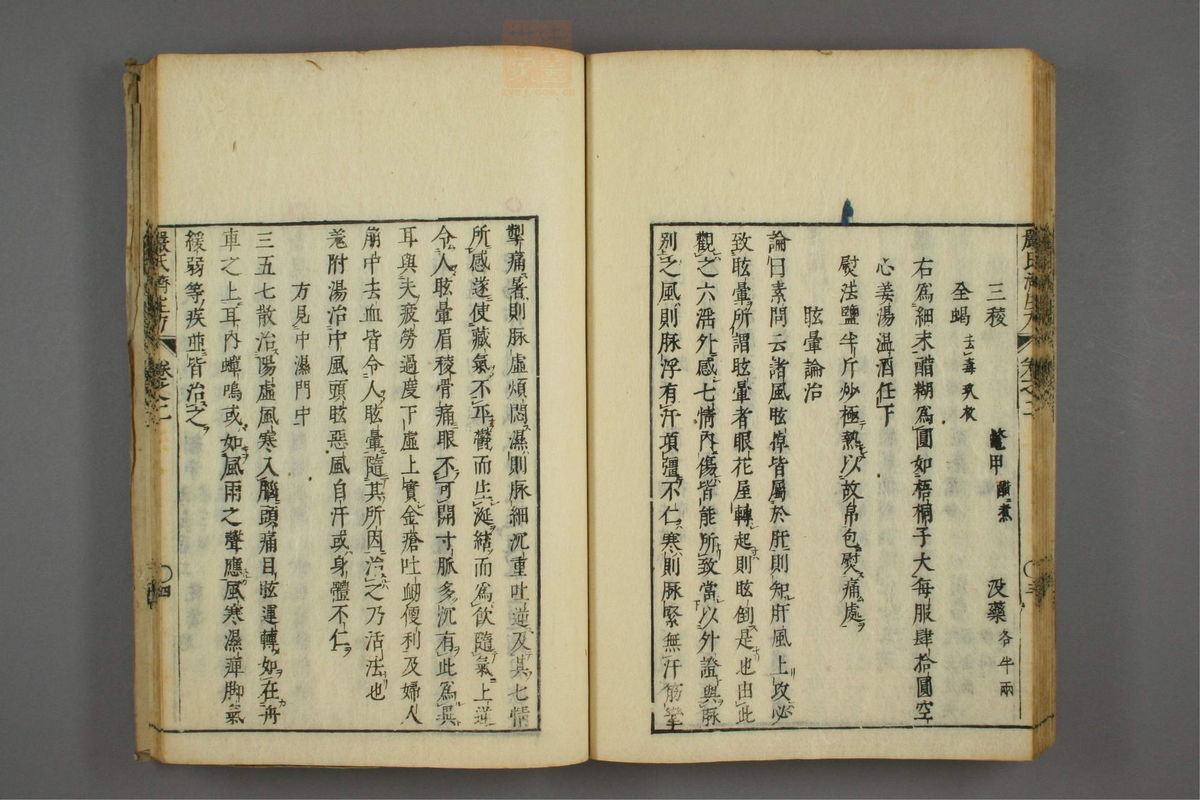 三稜　鼈甲醋煮　没藥各半兩
全蝎去毒玖枚
右爲細末醋糊爲圓如梧桐子大每服肆拾圓空
心姜湯温酒任下
熨法鹽半斤炒極熱以故帛包熨痛處
眩暈論治
論曰素問云諸風眩掉皆屬於肝則知肝風上攻必
致眩暈所謂眩暈者眼花屋轉起則眩倒是也由此
觀之六淫外感七情内傷皆能所致當以外證與脉
別之風則脉浮有汗項彊不仁寒則脉緊無汗筋攣
掣痛暑則脉虛煩悶濕則脉細沉重吐逆及其七情
所感遂使藏氣不平欝而生涎結而爲飲隨氣上逆
令人眩暈眉稜骨痛眼不可開寸脈多沉有此爲異
耳與夫疲勞過度下虛上實金瘡吐衄便利及婦人
崩中去血皆令人眩暈隨其所因治之乃活法也
芎附湯治中風頭眩惡風自汗或身體不仁
方見中濕門中
三五七散治陽虛風寒入腦頭痛目眩運轉如在舟
車之上耳内蟬鳴或如風雨之聲應風寒濕痺脚氣
緩弱等疾並皆治之
嚴氏濟生方　卷之二　〇四